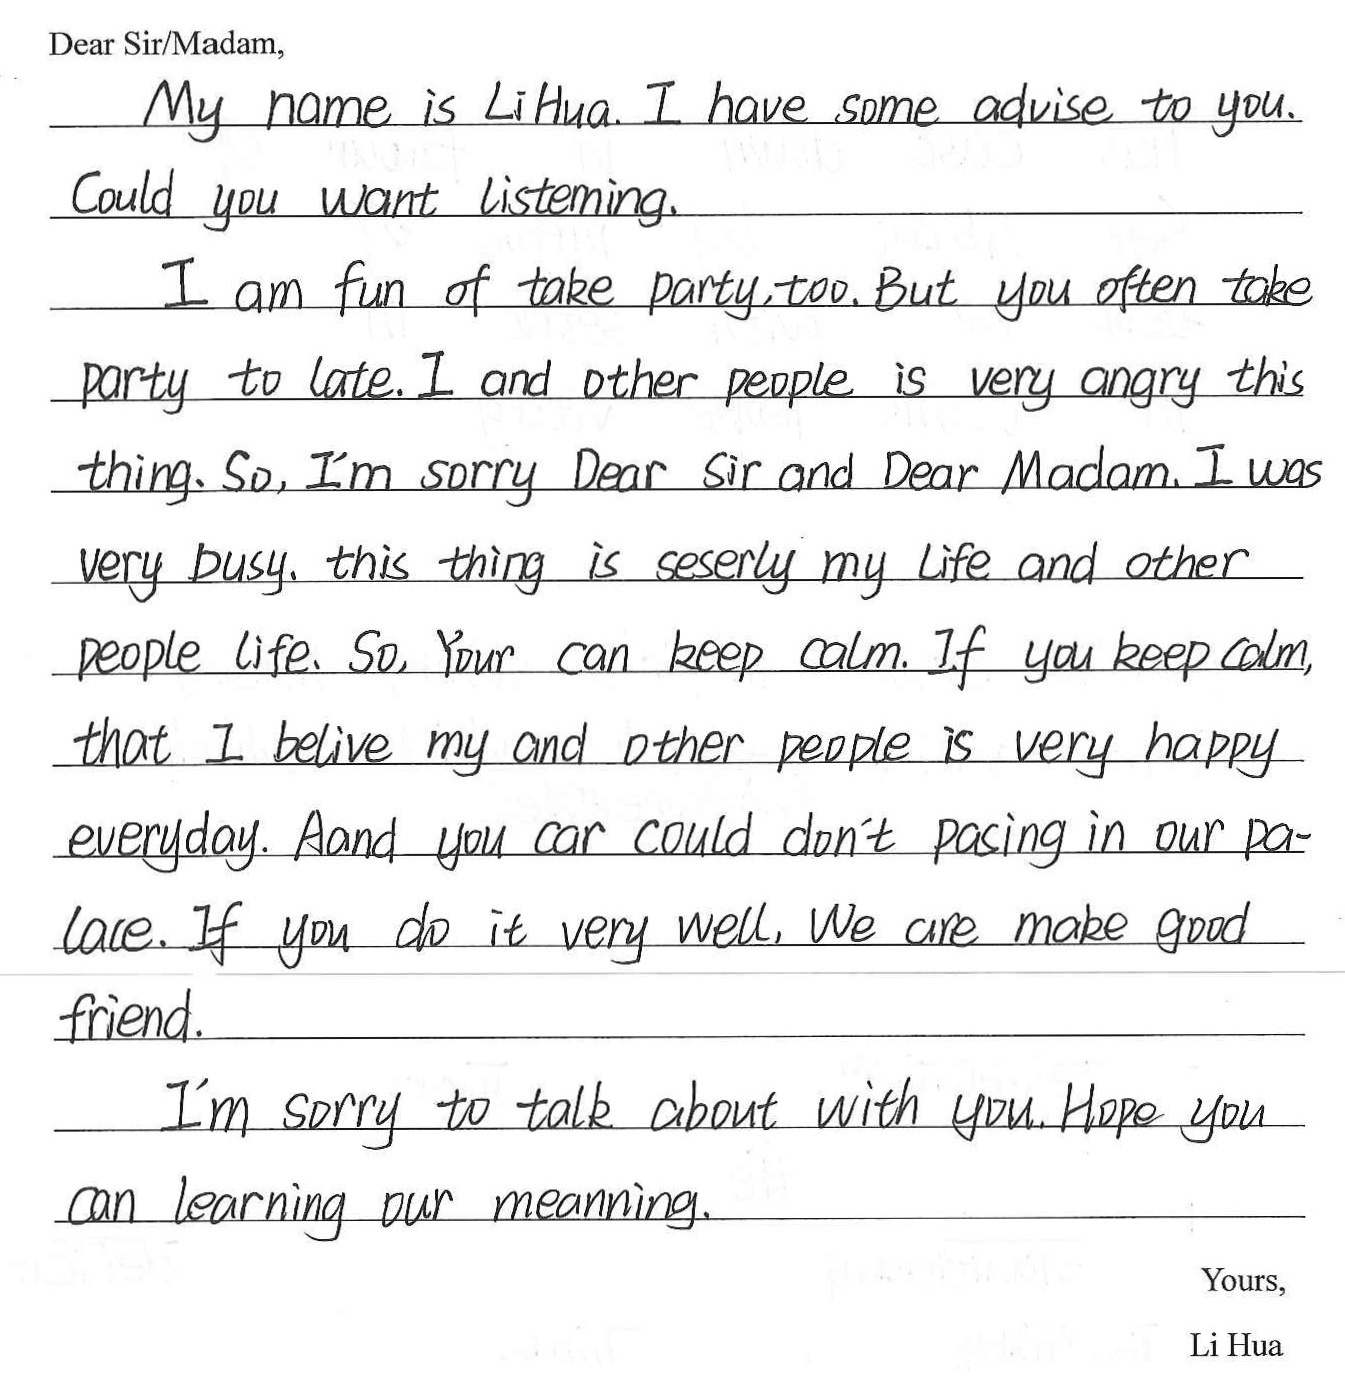 Dear Sir/Madam,
My name is Li Hua. I have some advise to you.
Could you want listerning.
I am fun of take party, too. But you often take
party to late. I and other people is very angry this
thing. So, I'm sorry Dear Sir and Dear Madam. I was
very busy. this thing is seserly my life and other
people life. So, Your can keep calm. If you keep calm,
that I belive my and other people is very happy
everyday. Aand you car could don't pacing in our pa-
lace. If you do it very well, We are make good
friend.
I'm sorry to talk about with you. Hope you
can learning our meanning.
Yours,
Li Hua